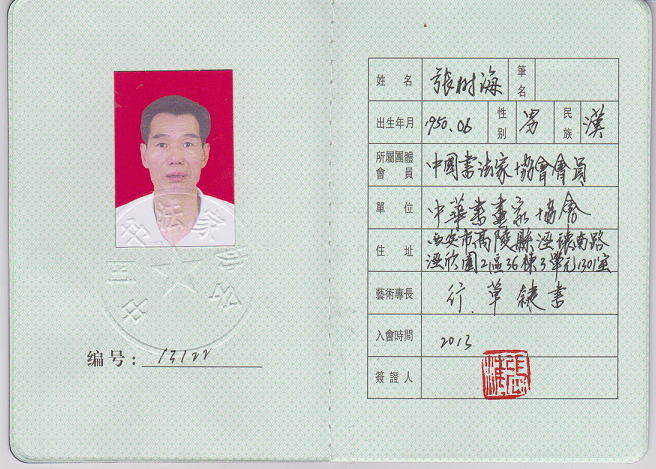 编号：13122
姓名 張树海 筆名
出生年月 1950.06 性别 男 民族 漢
所屬團體會員 中國書法家協會會員
單位 中华書畫家協會
住址 西安市高陵縣涇環南路
涇欣園2區36棟3單元1301室
藝術專長 行.草 隸書
入會時間 2013
簽證人